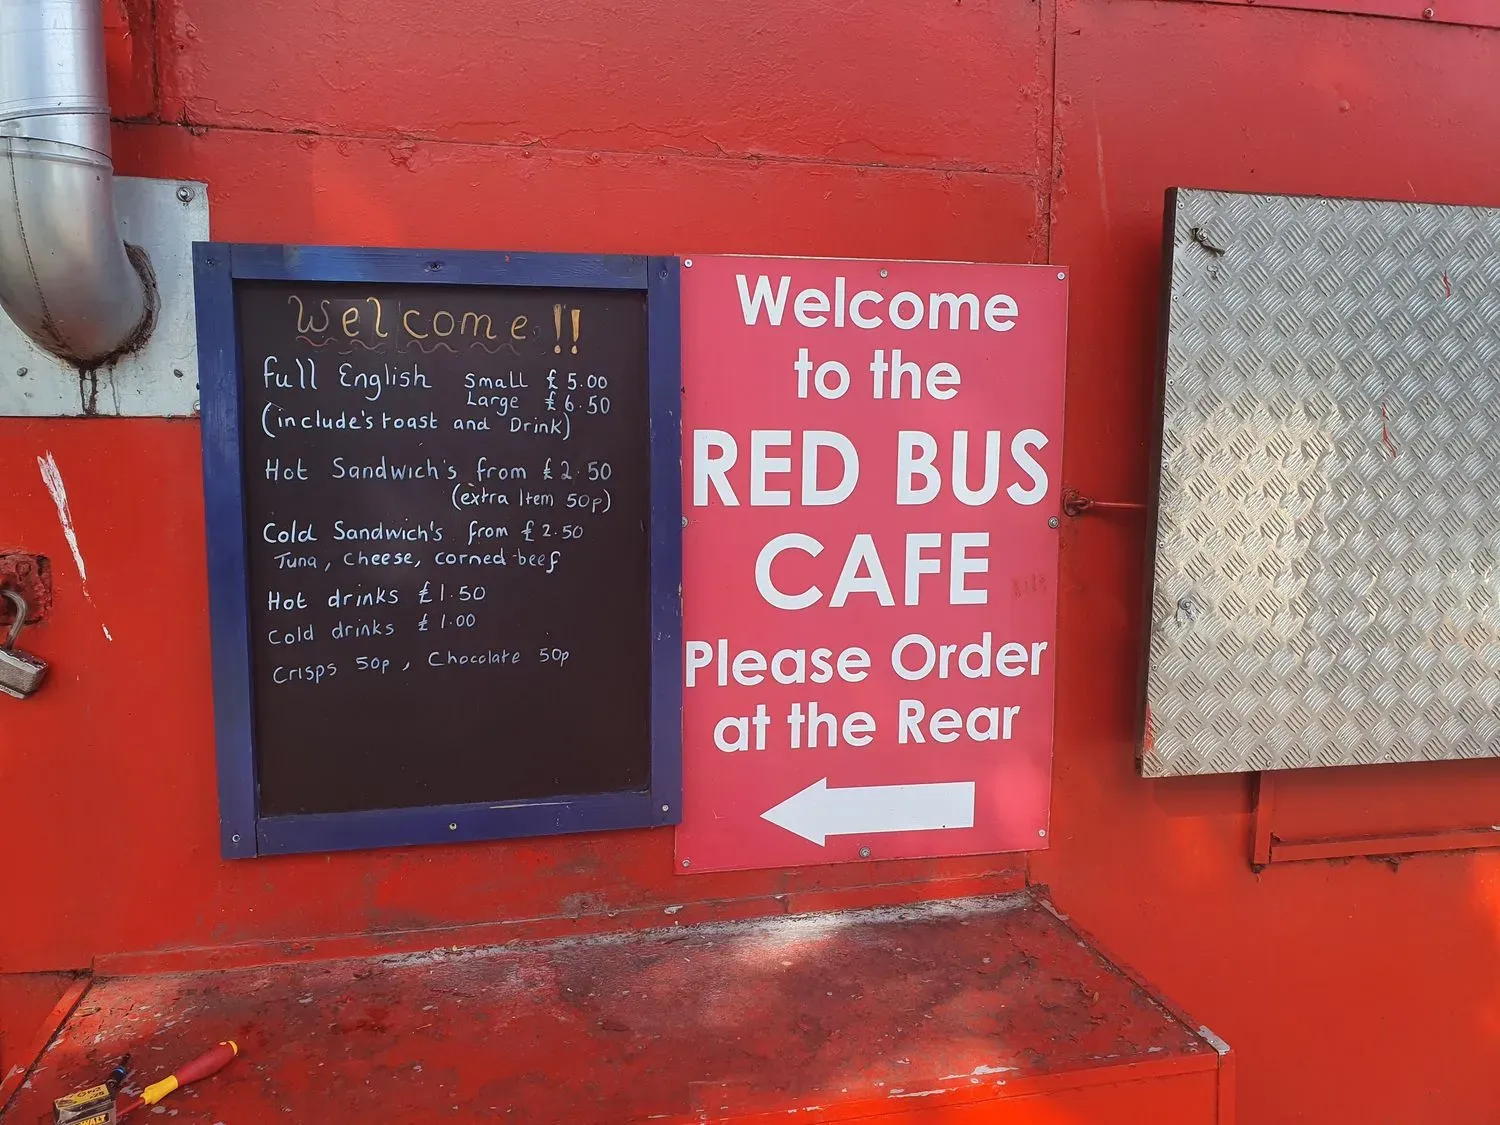 Welcome!!
full English small £5.00
Large £6.50
(include's toast and Drink)
Hot Sandwich's from £2.50
(extra Item 50p)
Cold Sandwich's from £2.50
Tuna, Cheese, corned-beef
Hot drinks £1.50
Cold drinks £1.00
Crisps 50p, Chocolate 50p
Welcome
to the
RED BUS
CAFE
Please Order
at the Rear